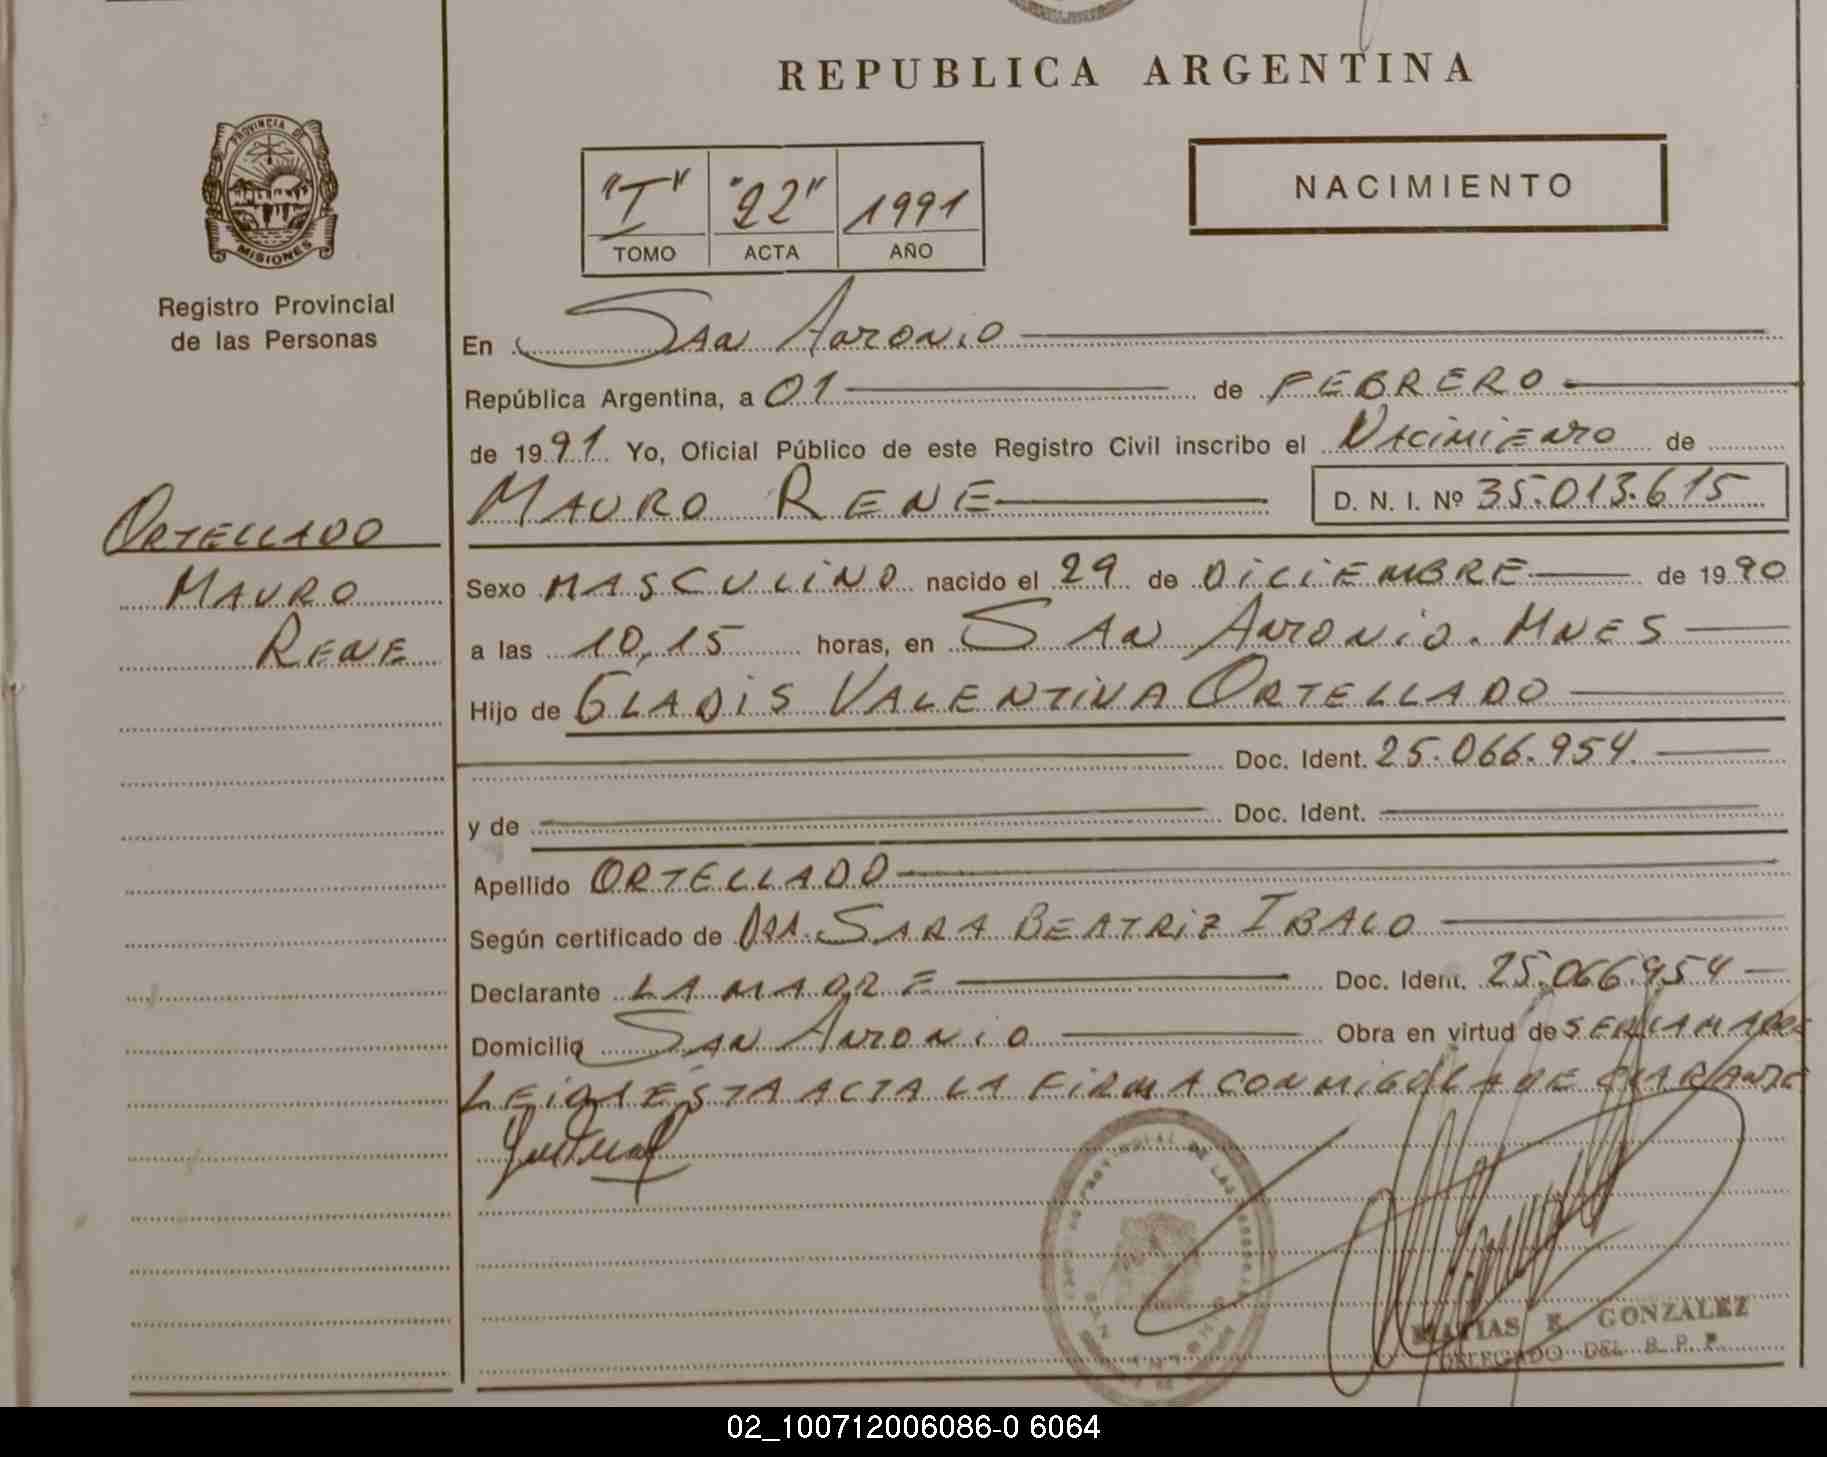 REPUBLICA ARGENTINA
PROVINCIA DE
MISIONES
Registro Provincial
de las Personas
"I" "22" 1991
TOMO ACTA AÑO
NACIMIENTO
En San Antonio
República Argentina, a 01 de FEBRERO
de 1991 Yo, Oficial Público de este Registro Civil inscribo el Nacimiento de
MAURO RENE D. N. I. Nº 35.013.615
ORTELLADO
MAURO
RENE
Sexo MASCULINO nacido el 29 de DICIEMBRE de 1990
a las 10,15 horas, en SAN ANTONIO. MNES
Hijo de GLADIS VALENTINA ORTELLADO
Doc. Ident. 25.066.954
y de Doc. Ident.
Apellido ORTELLADO
Según certificado de DRA. SARA BEATRIZ IBALO
Declarante LA MADRE Doc. Ident. 25.066.954
Domicilio SAN ANTONIO Obra en virtud de SER LA MADRE
LEIDA ESTA ACTA LA FIRMA CONMIGO LA DECLARANTE
MATIAS R. GONZALEZ
DELEGADO DEL R. P. P.
02_100712006086-0 6064